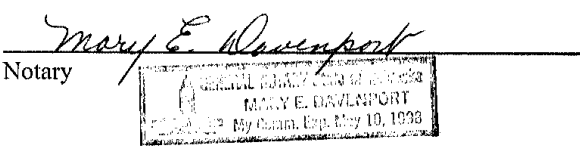 Mary E. Davenport
Notary
GENERAL NOTARY
MARY E. DAVENPORT
My Comm. Exp. May 10, 1998